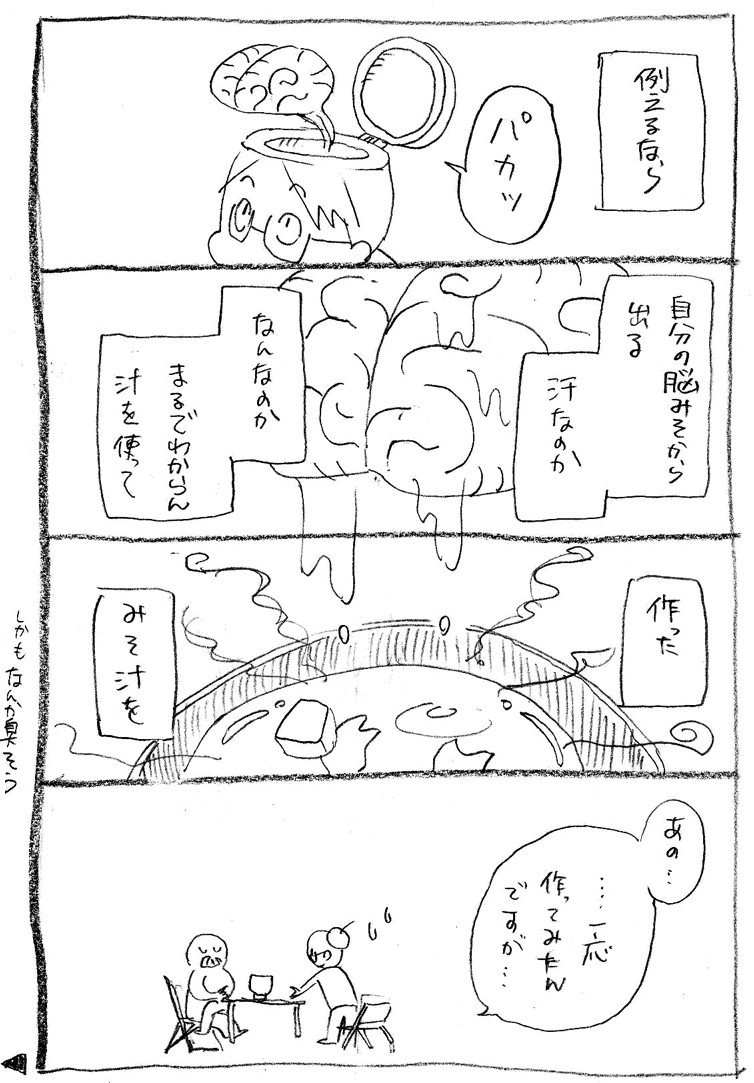 例えるなら
パカッ
自分の脳みそから
出る
汗なのか
なんなのか
まるでわからん
汁を使って
作った
みそ汁を
しかもなんか臭そう
あの…
……一応
作ってみたん
ですが…